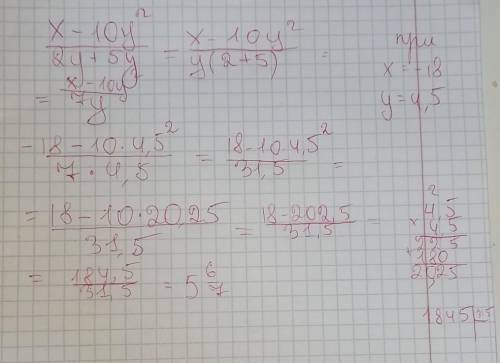 x - 10y² / 2y + 5y = x - 10y² / y(2+5) =
= x - 10y² / 7y
при
x = -18
y = 4,5
-18 - 10 · 4,5² / 7 · 4,5 = 18 - 10 · 4,5² / 31,5 =
= 18 - 10 · 20,25 / 31,5 = 18 - 202,5 / 31,5 =
= 184,5 / 31,5 = 5 6/7
2
4,5
4,5
225
+180
2025
1845